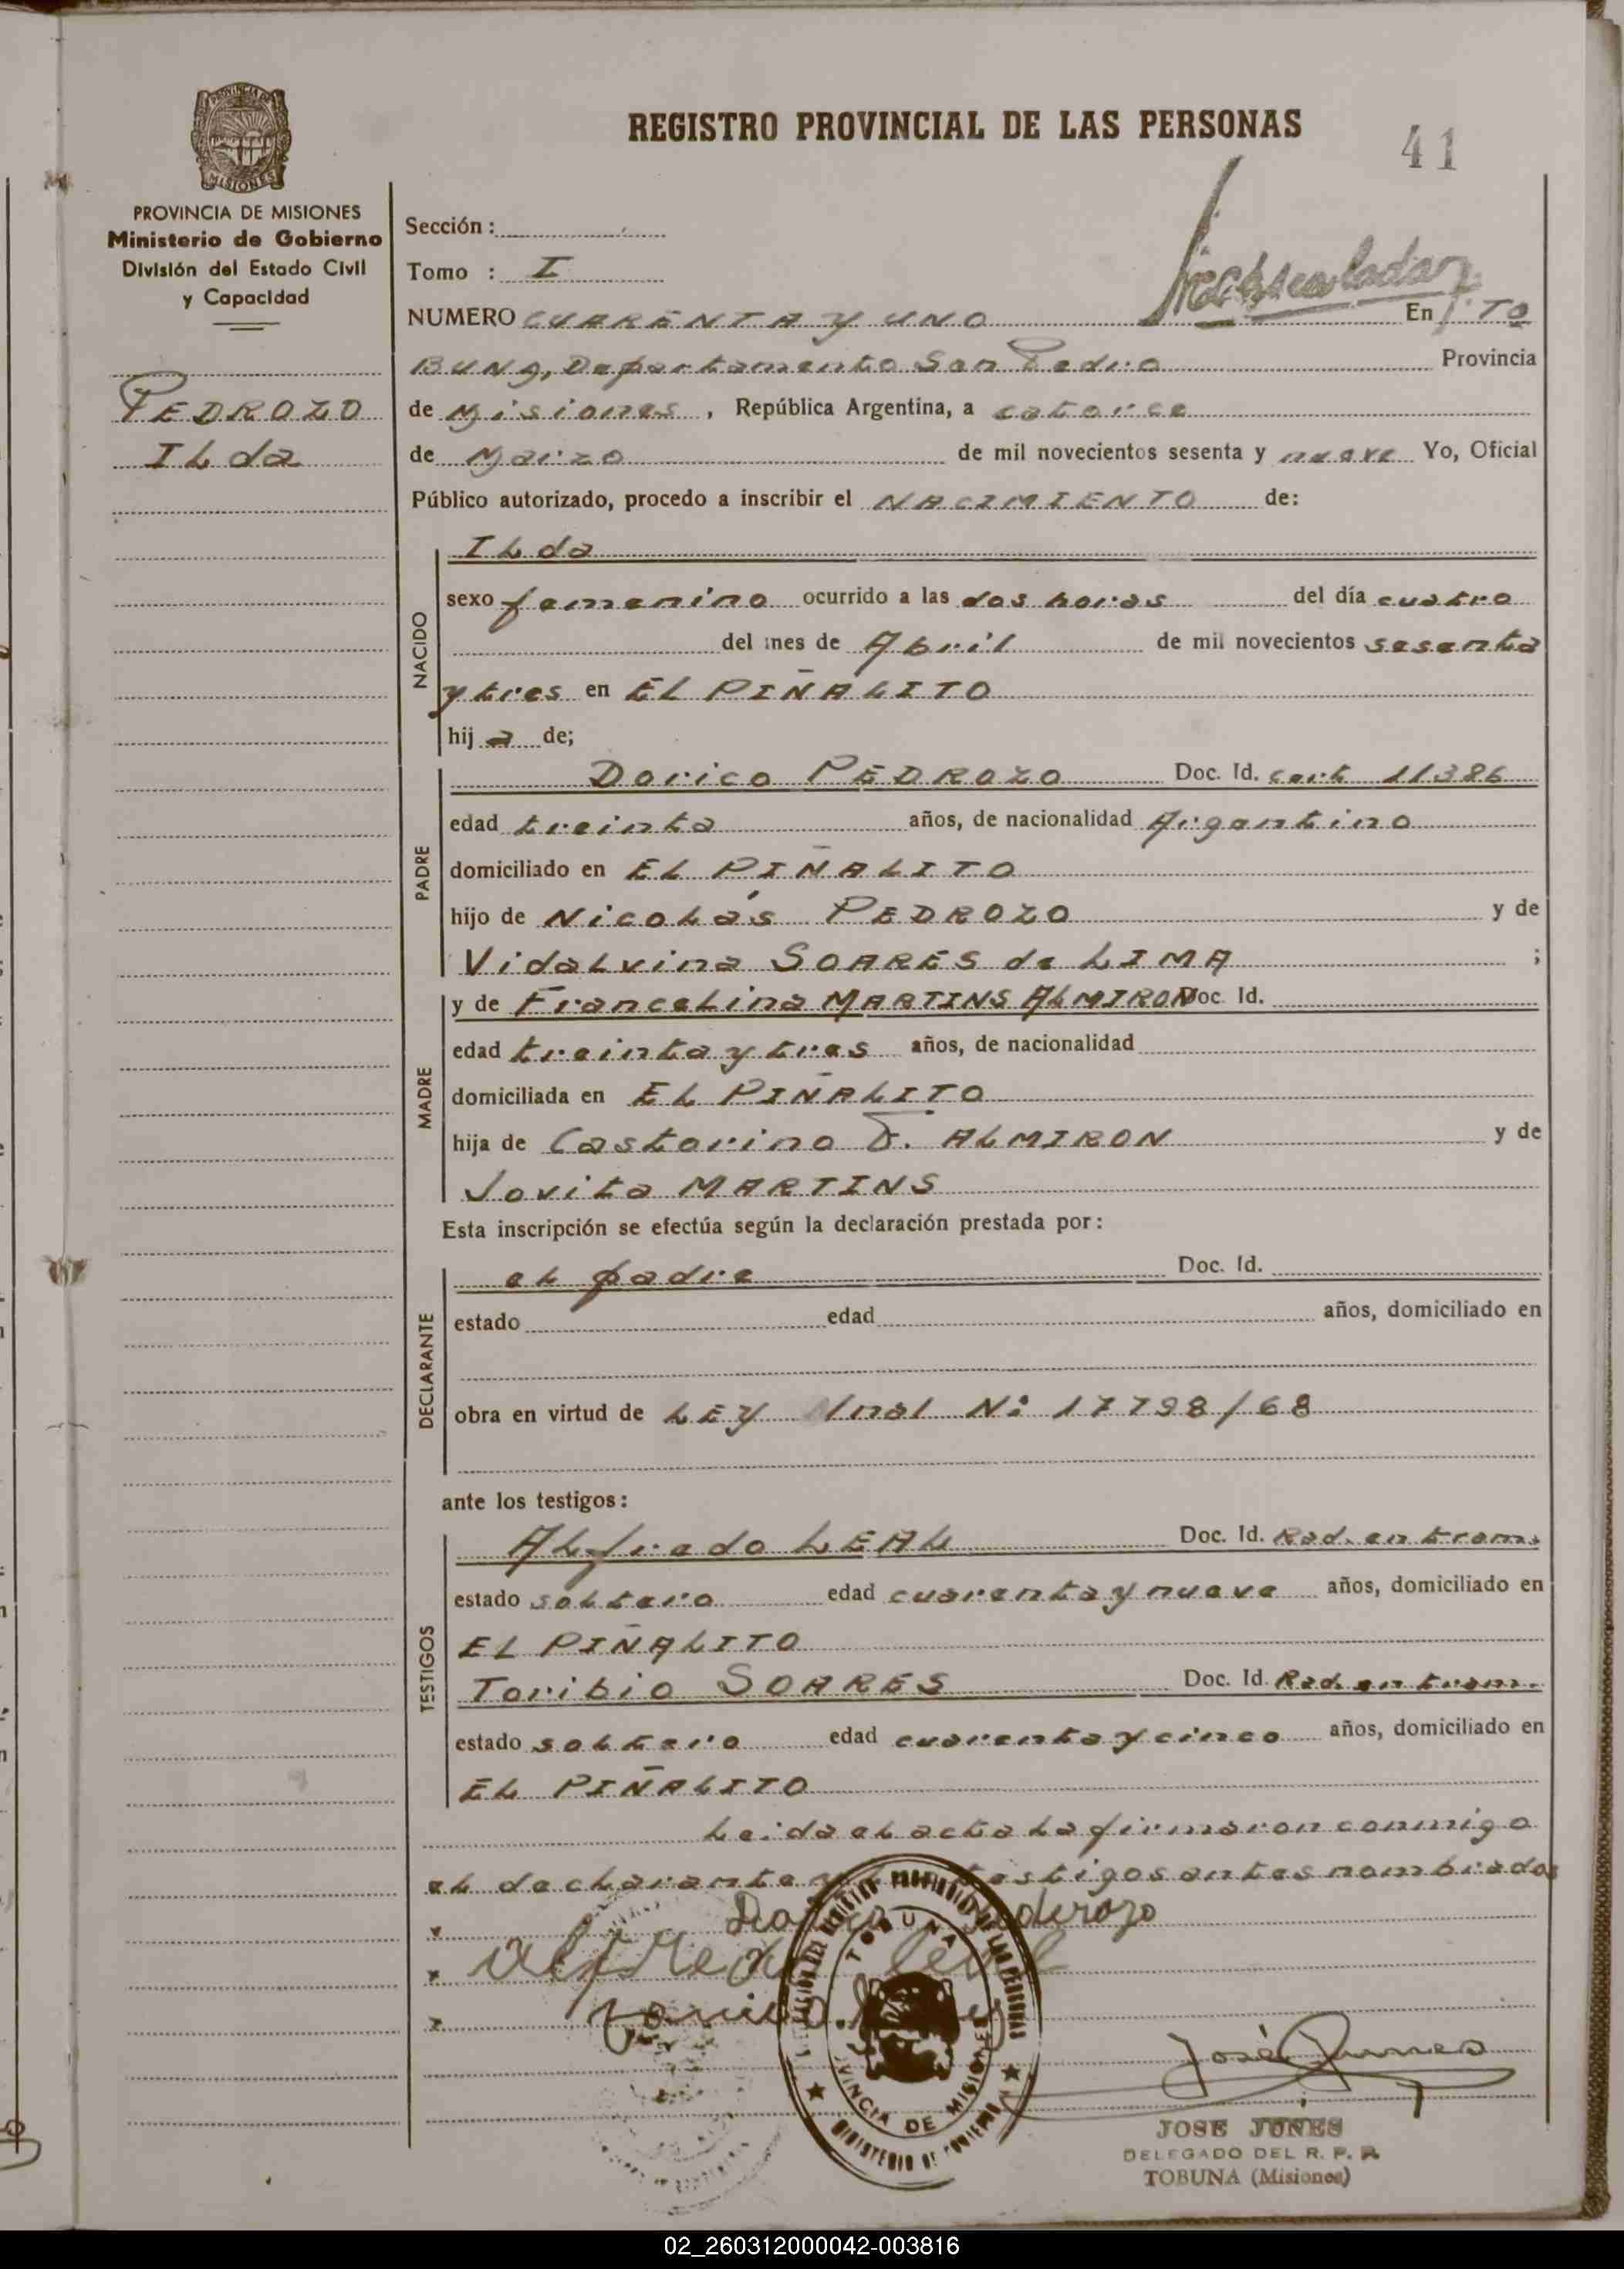 REGISTRO PROVINCIAL DE LAS PERSONAS
41
MISIONES
PROVINCIA DE MISIONES
Ministerio de Gobierno
División del Estado Civil
y Capacidad
PEDROZO
ILda
Sección :
Tomo : I
NUMERO CUARENTA Y UNO En PTO
BUNG, Departamento San Pedro Provincia
de Misiones, República Argentina, a catorce
de Marzo de mil novecientos sesenta y nueve Yo, Oficial
Público autorizado, procedo a inscribir el NACIMIENTO de:
NACIDO
ILda
sexo femenino ocurrido a las dos horas del día cuatro
del mes de Abril de mil novecientos sesenta
y tres en EL PIÑALITO
hij a de;
PADRE
Dorico PEDROZO Doc. Id. cert 11386
edad treinta años, de nacionalidad Argentino
domiciliado en EL PIÑALITO
hijo de Nicolás PEDROZO y de
Vidalvina SOARES de LIMA ;
MADRE
y de Francelina MARTINS ALMIRON Doc. Id.
edad treinta y tres años, de nacionalidad
domiciliada en EL PIÑALITO
hija de Castorino F. ALMIRON y de
Jovita MARTINS
Esta inscripción se efectúa según la declaración prestada por:
DECLARANTE
el padre Doc. Id.
estado edad años, domiciliado en
obra en virtud de LEY Nnal Nº 17798/68
ante los testigos:
TESTIGOS
Alfredo LEAL Doc. Id. Rad. en tram.
estado soltero edad cuarenta y nueve años, domiciliado en
EL PIÑALITO
Toribio SOARES Doc. Id. Rad. en tram.
estado soltero edad cuarenta y cinco años, domiciliado en
EL PIÑALITO
Leida el acta la firmaron conmigo
el declarante y testigos antes nombrados
alfredo leal
TOBUNA
PROVINCIA DE MISIONES
MINISTERIO DE GOBIERNO
José Junes
JOSE JUNES
DELEGADO DEL R. P. P.
TOBUNA (Misiones)
02_260312000042-003816